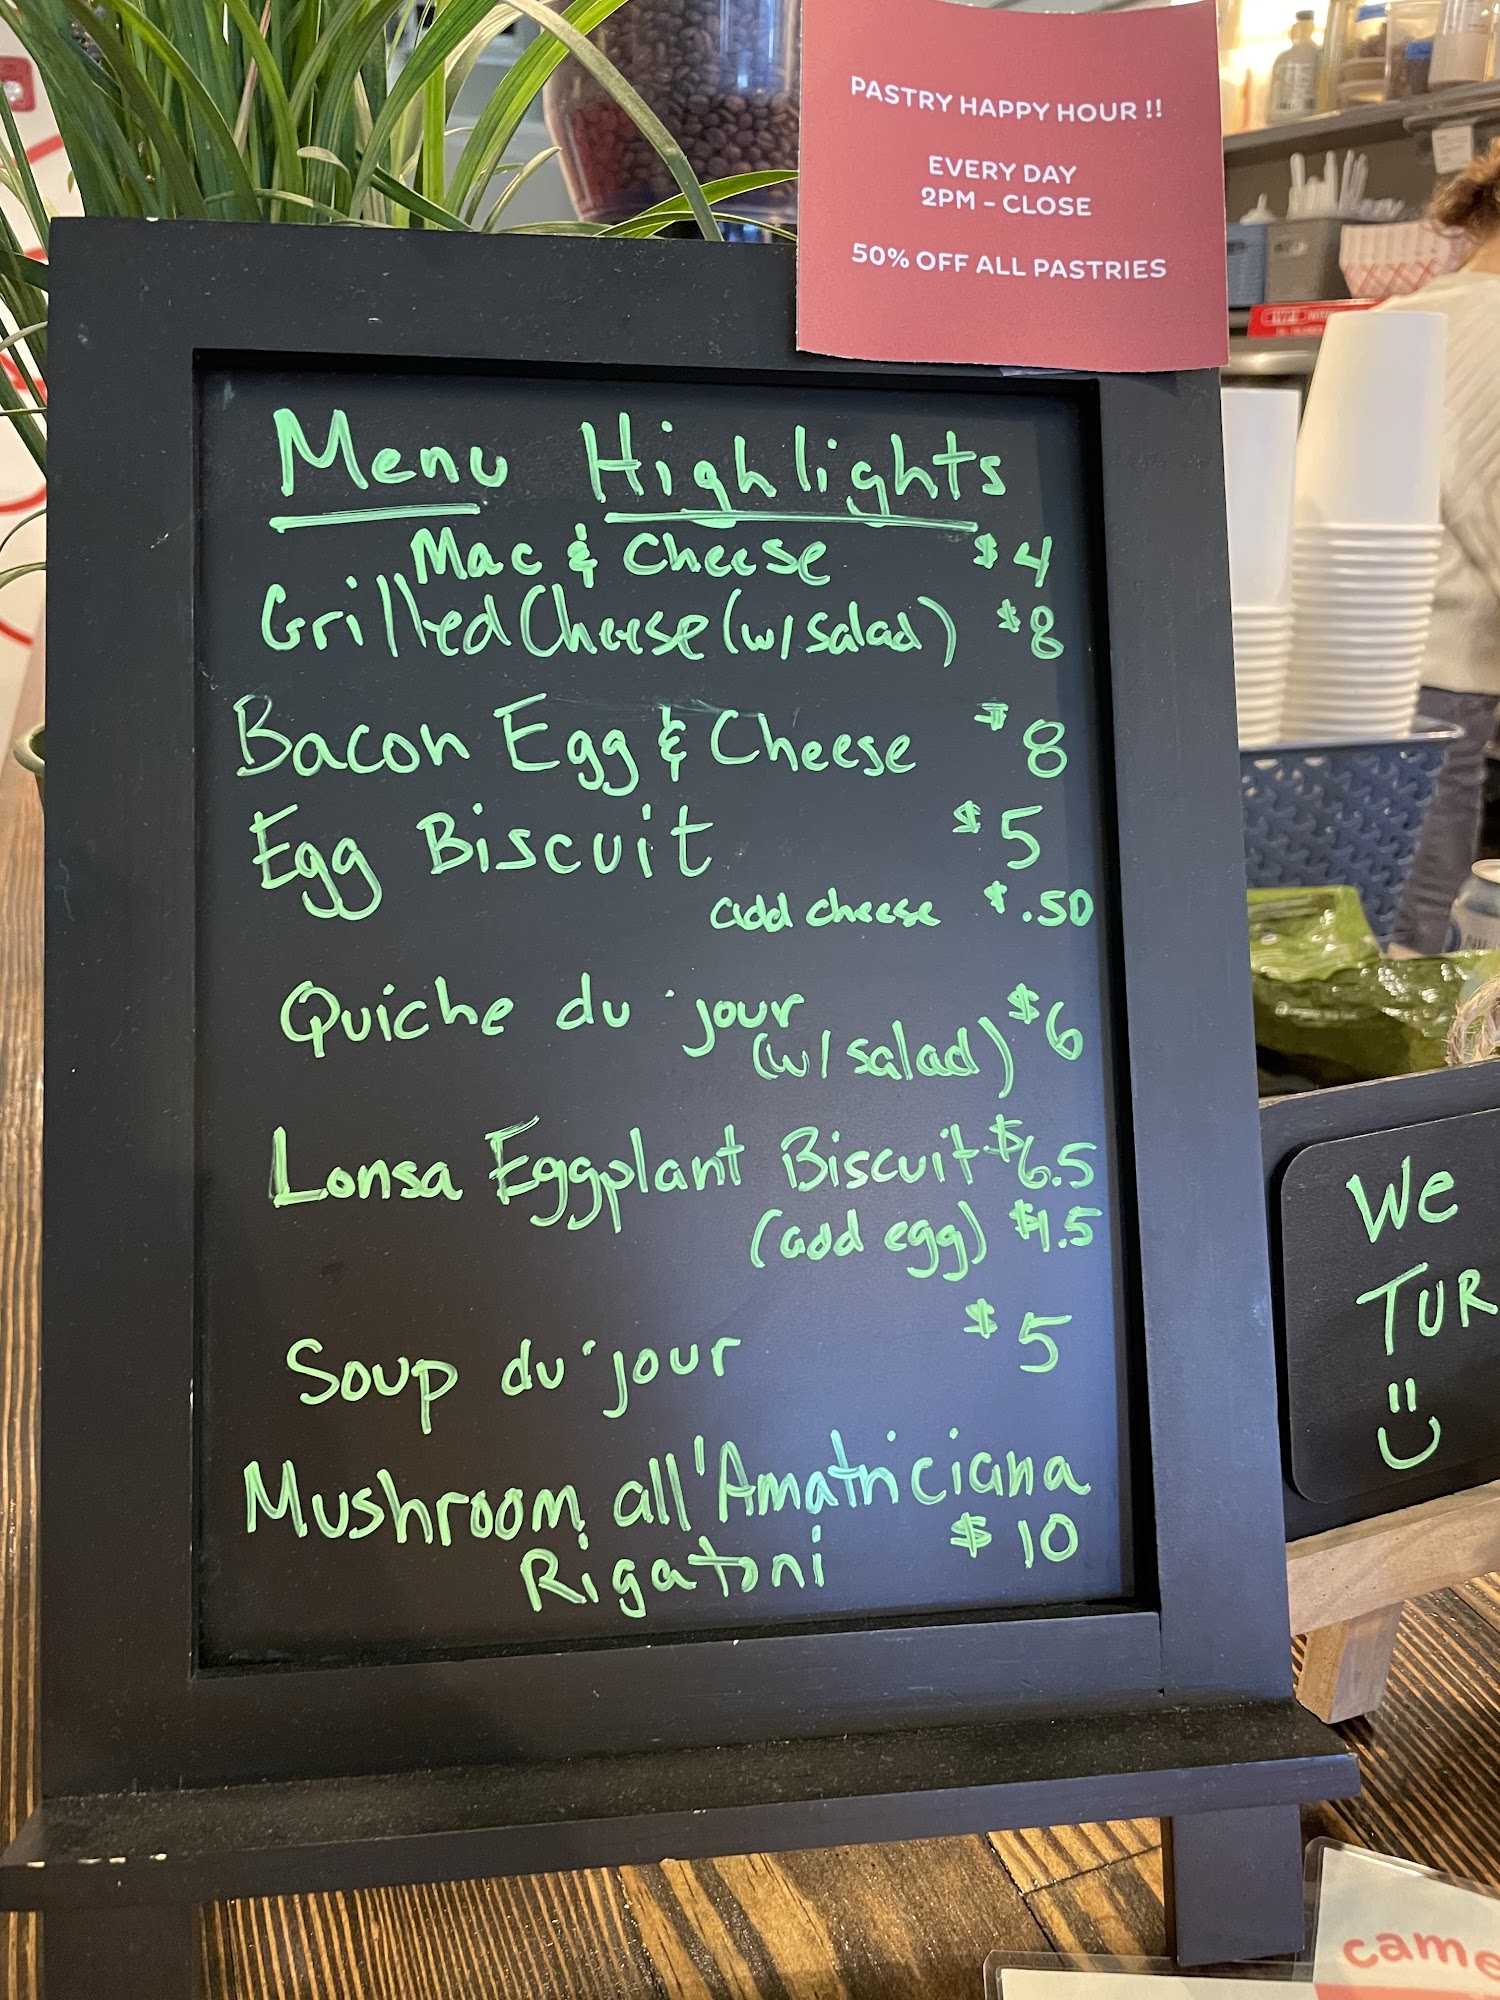 PASTRY HAPPY HOUR !!
EVERY DAY
2PM - CLOSE
50% OFF ALL PASTRIES
Menu Highlights
Mac & Cheese $4
Grilled Cheese (w/ salad) $8
Bacon Egg & Cheese $8
Egg Biscuit $5
add cheese $.50
Quiche du jour $6
(w/ salad)
Lonsa Eggplant Biscuit $6.5
(add egg) $1.5
Soup du jour $5
Mushroom all'Amatriciana
Rigatoni $10
We
TUR
came